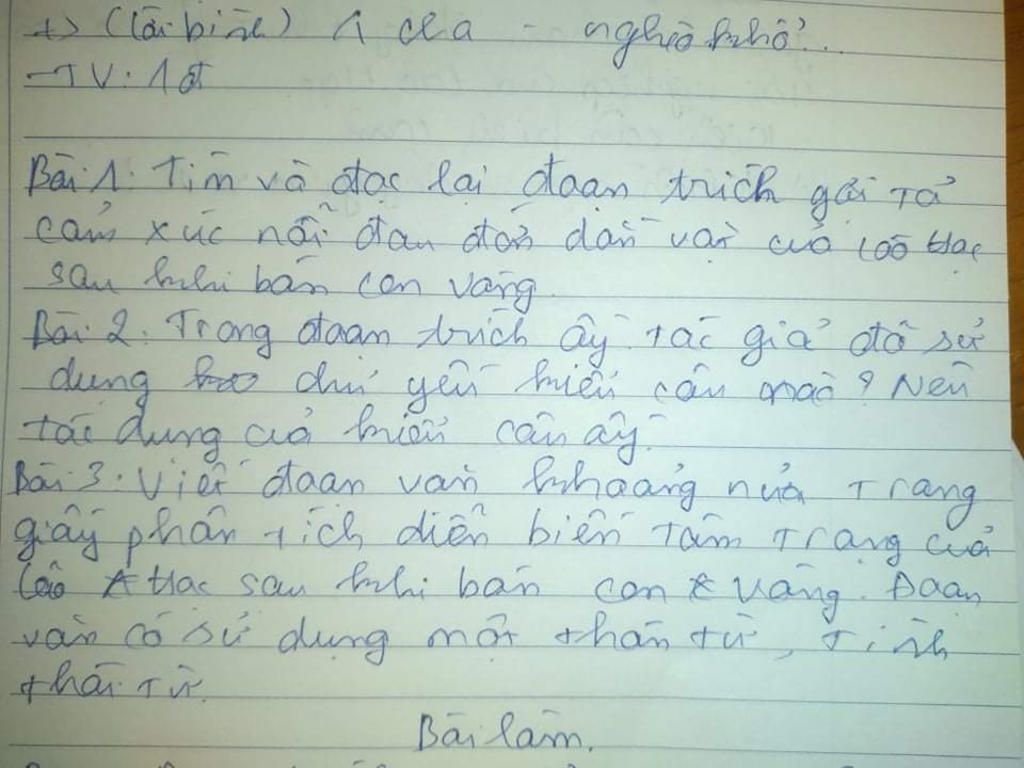 +) (lời bình) 1 cha - nghèo khổ...
- TV: 1 đ
Bài 1: Tìm và đọc lại đoạn trích gợi tả
cảm xúc nỗi đau đớn dằn vặt của Lão Hạc
sau khi bán con vàng.
Bài 2: Trong đoạn trích ấy tác giả đã sử
dụng chủ yếu kiểu câu nào? Nêu
tác dụng của kiểu câu ấy.
Bài 3: Viết đoạn văn khoảng nửa trang
giấy phân tích diễn biến tâm trạng của
Lão Hạc sau khi bán con Vàng. Đoạn
văn có sử dụng một thán từ, tình
thái từ.
Bài làm.